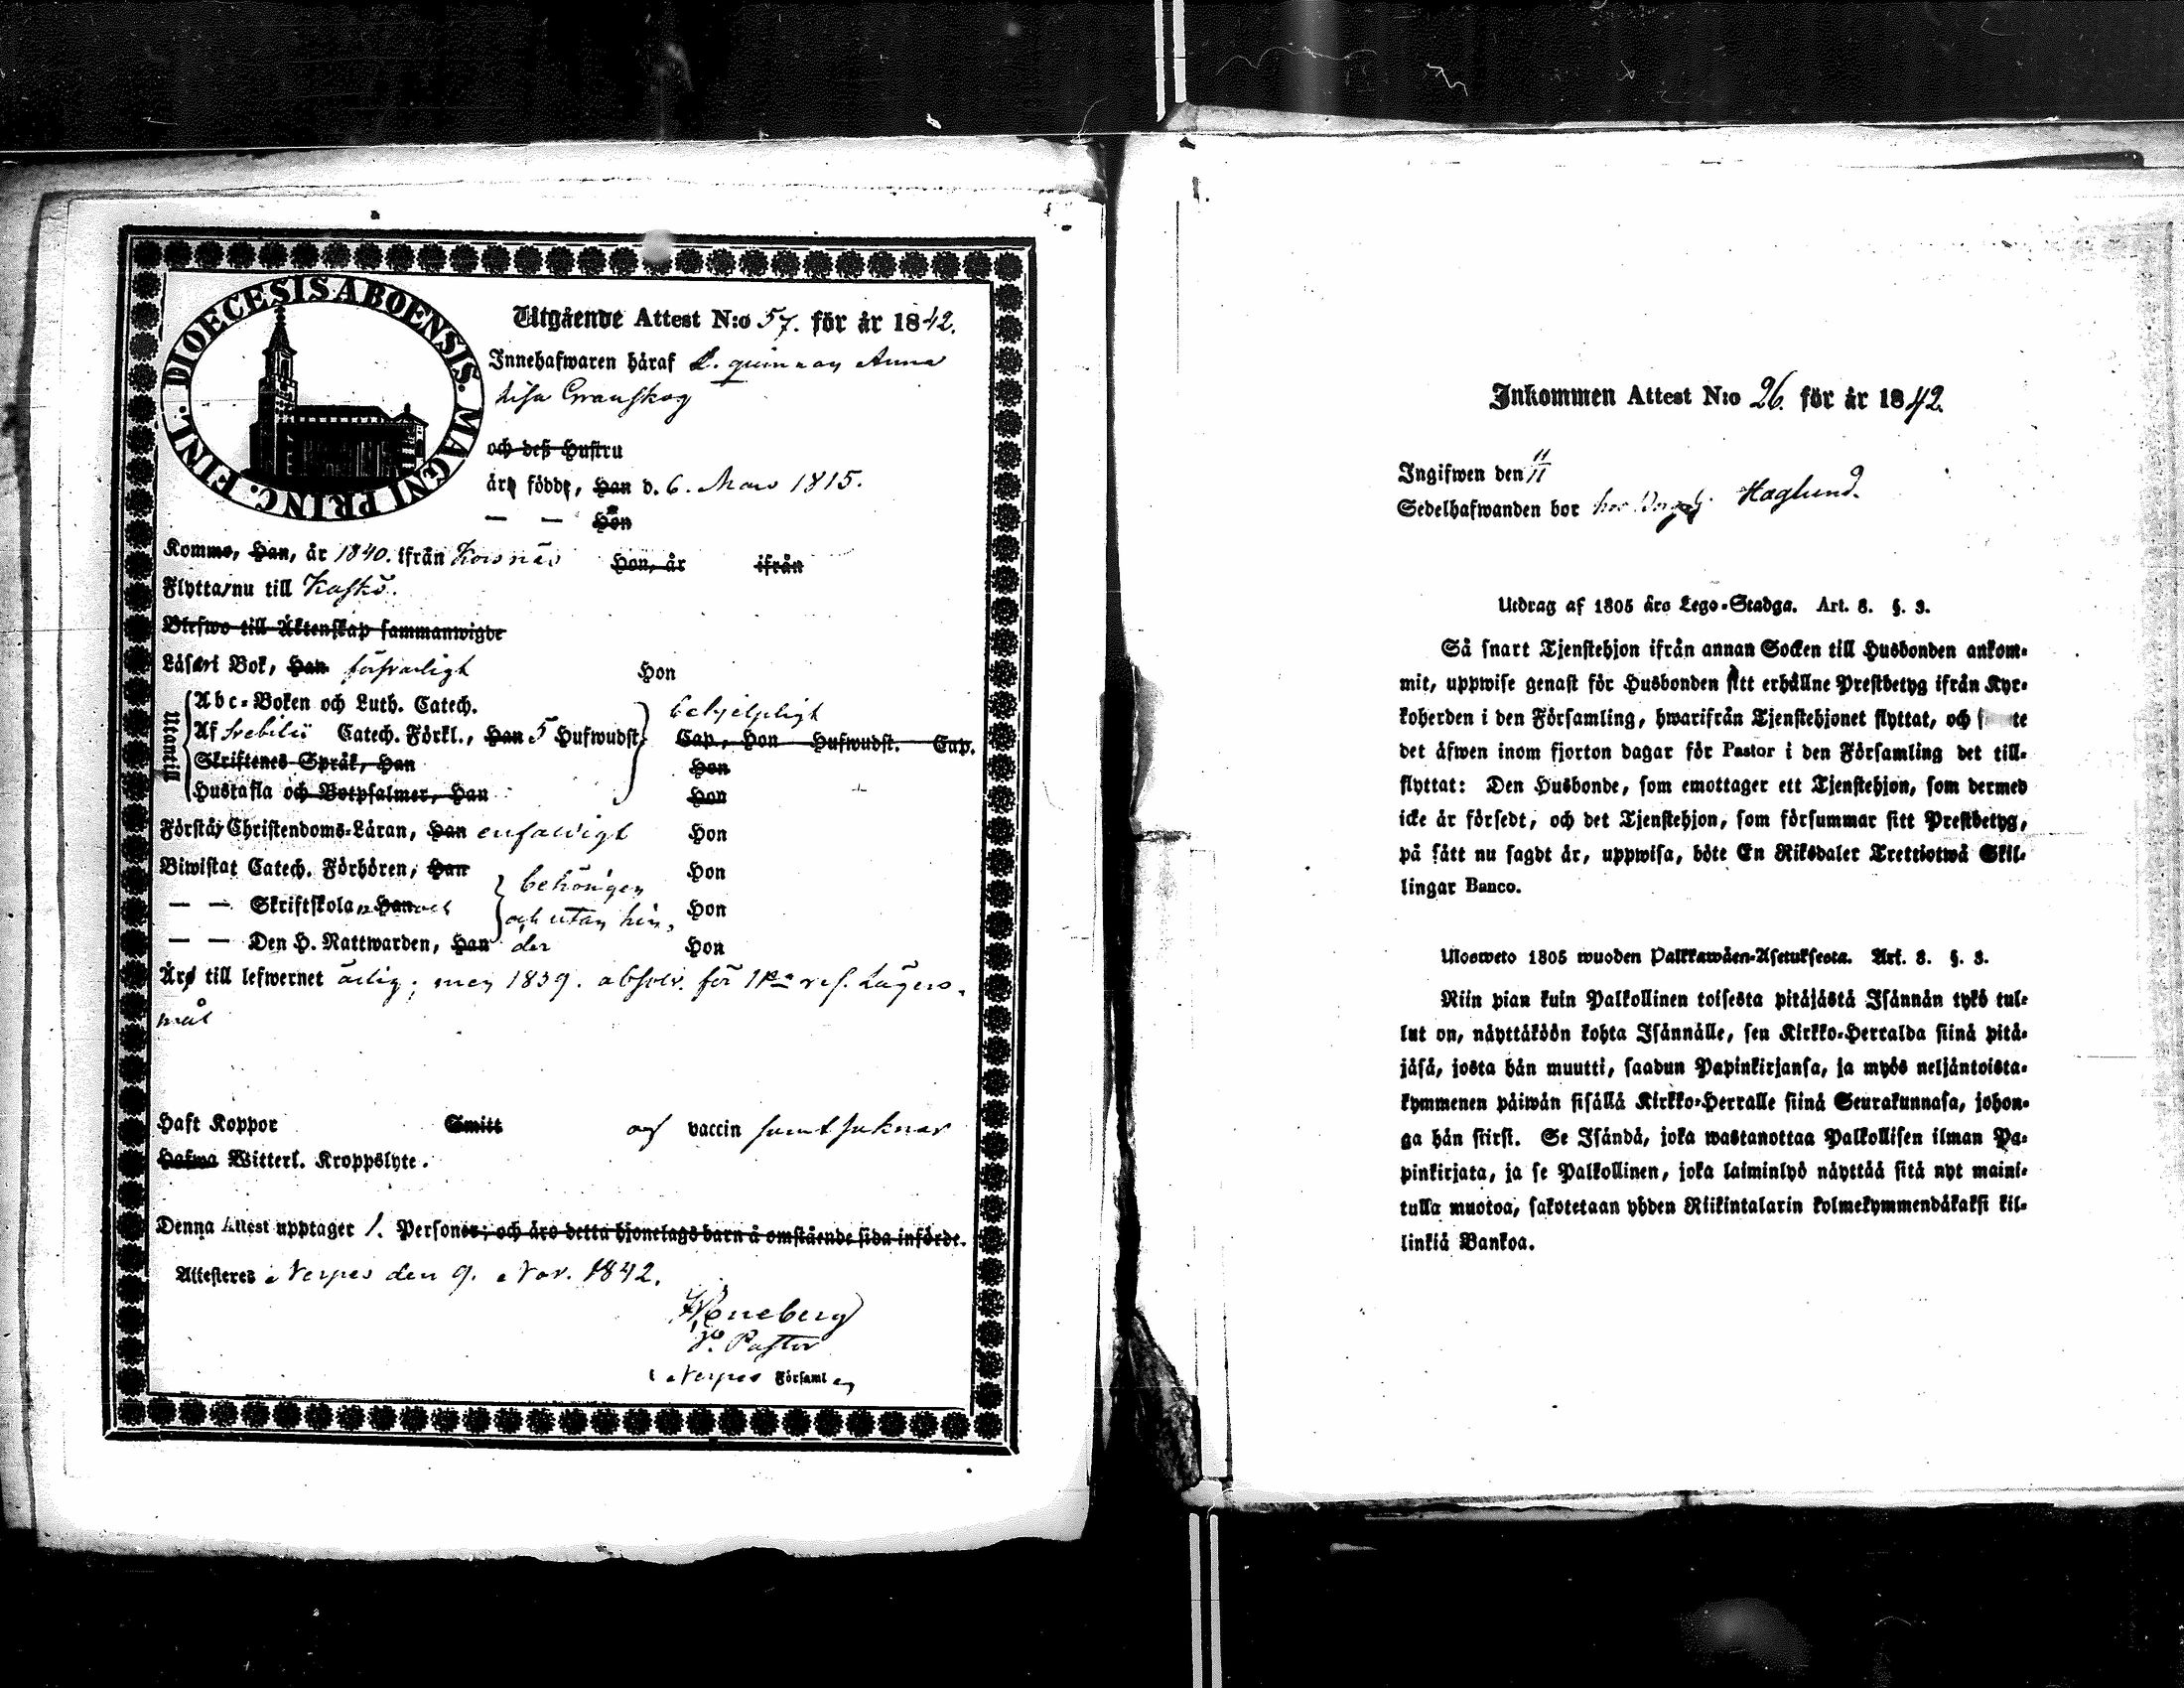 DIOECESIS ABOENSIS. MAGNI PRINC. FINL.
Utgående Attest N:o 57. för år 1842.
Innehafwaren häraf L. quinnan Anna
Lisa Granskog
och deß Hustru
äro födde, Han d. 6. Mars 1815.
— — Hon
Komme, Han, år 1840. ifrån Korsnäs Hon, år ifrån
Flytta nu till Kaskö.
Blefwo till Äktenskap sammanwigde
Läsa ri Bok, Han försvarligt Hon
Utantill
Abc-Boken och Luth. Catech. behjelpligt
Af Svebilii Catech. Förkl., Han 5 Hufwudst. Cap., Hon Hufwudst. Cap.
Skriftenes Språk, Han Hon
Hustafla och Botpsalmer, Han Hon
Förstår Christendoms-Läran, Han enfaldigt Hon
Biwistat Catech. Förhören, Han behörigen Hon
— — Skriftskolan Han och och utan hin, Hon
— — Den H. Nattwarden, Han der Hon
Äro till lefwernet ärlig; men 1839. absolv. för 1sta res. Lägers-
mål
Haft Koppor Smitt af vaccin samt saknar
Hafwa Witterl. Kroppslyte.
Denna Attest upptager 1. Personer; och äro detta hjonelags barn å omstående sida införde.
Attesteres Nerpes den 9. Nov. 1842.
Pastor
i Nerpes Församl en
Inkommen Attest N:o 26. för år 1842.
Ingifwen den 11/11
Sedelhafwanden bor hos Haglund.
Utdrag af 1805 års Lego-Stadga. Art. 8. §. 3.
Så snart Tjenstehjon ifrån annan Socken till Husbonden ankom-
mit, uppwise genast för Husbonden sitt erhållne Prestbetyg ifrån Kyr-
koherden i den Församling, hwarifrån Tjenstehjonet flyttat, och
det äfwen inom fjorton dagar för Pastor i den Församling det till-
flyttat: Den Husbonde, som emottager ett Tjenstehjon, som dermed
icke är försedt, och det Tjenstehjon, som försummar sitt Prestbetyg,
på sätt nu sagdt är, uppwisa, böte En Riksdaler Trettiotwå Skil-
lingar Banco.
Ulosweto 1805 wuoden Palkkawäen-Asetuksesta. Art. 8. §. 3.
Niin pian kuin Palkollinen toisesta pitäjästä Isännän tykö tul-
lut on, näyttäköön kohta Isännälle, sen Kirkko-Herralda siinä pitä-
jäsä, josta hän muutti, saadun Papinkirjansa, ja myös neljäntoista-
kymmenen päiwän sisällä Kirkko-Herralle siinä Seurakunnasa, johon-
ga hän siirsi. Se Isändä, joka wastanottaa Palkollisen ilman Pa-
pinkirjata, ja se Palkollinen, joka laiminlyö näyttää sitä nyt maini-
tulla muotoa, sakotetaan yhden Riikintalarin kolmekymmendäkaksi kil-
linkiä Bankoa.